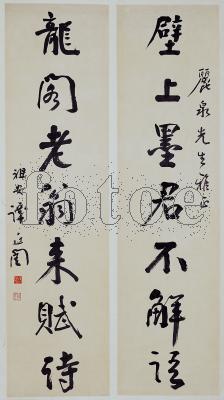 麗泉先生雅正
壁上墨君不解語
龍閣老翁來賦詩
祖安譚延闓
fotoe